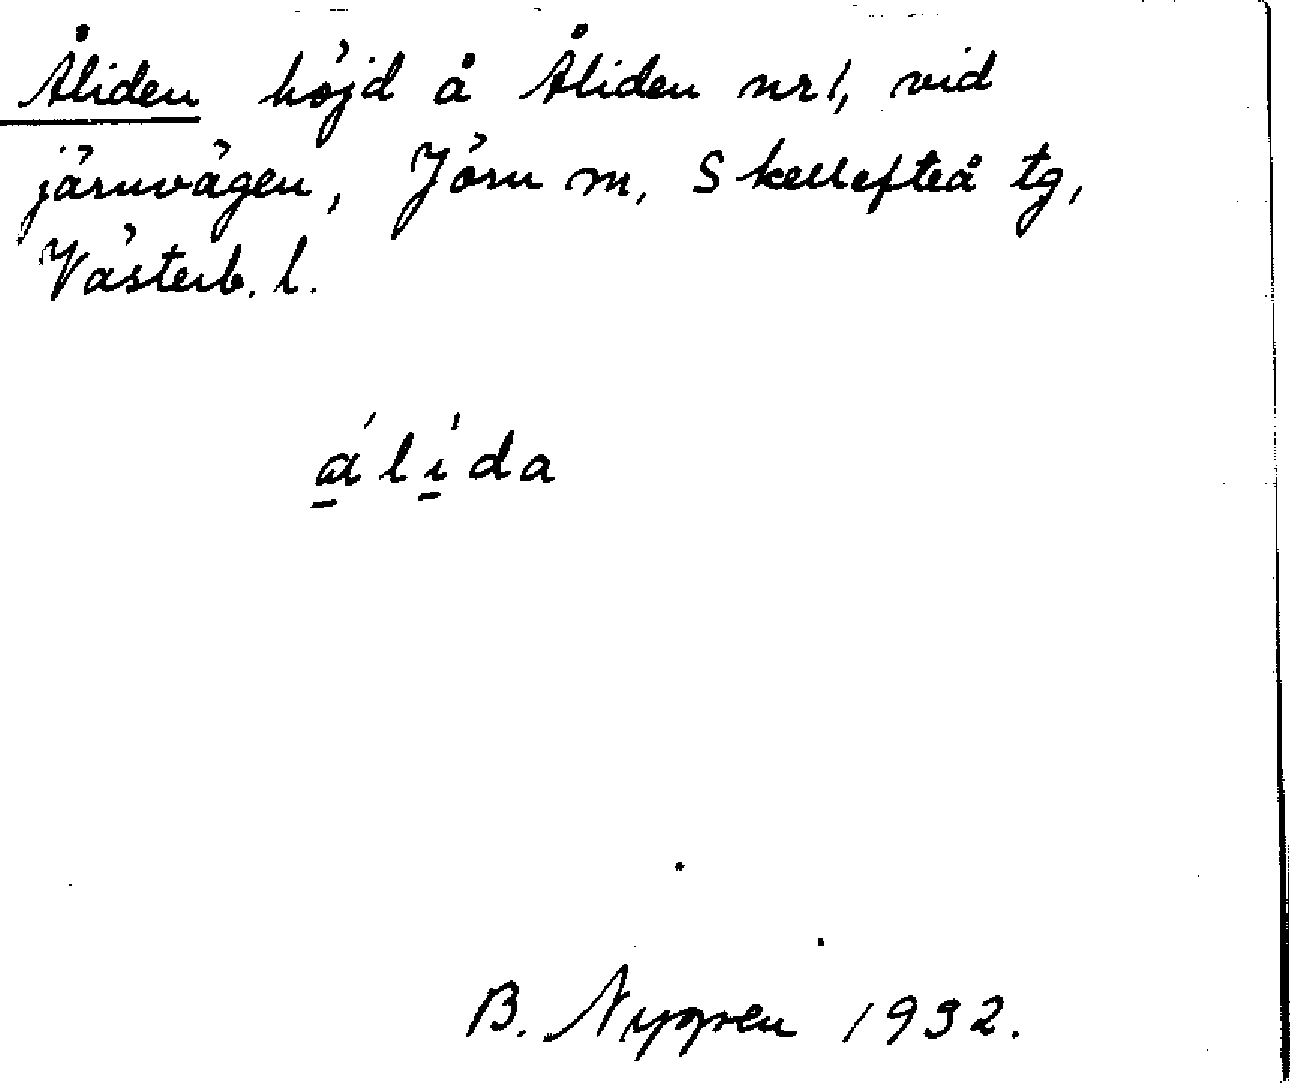 Åliden höjd å Åliden nr 1, vid
järnvägen, Jörn m, Skellefteå tg,
Västerb. l.
á̱lí̱da
B. Nygren 1932.